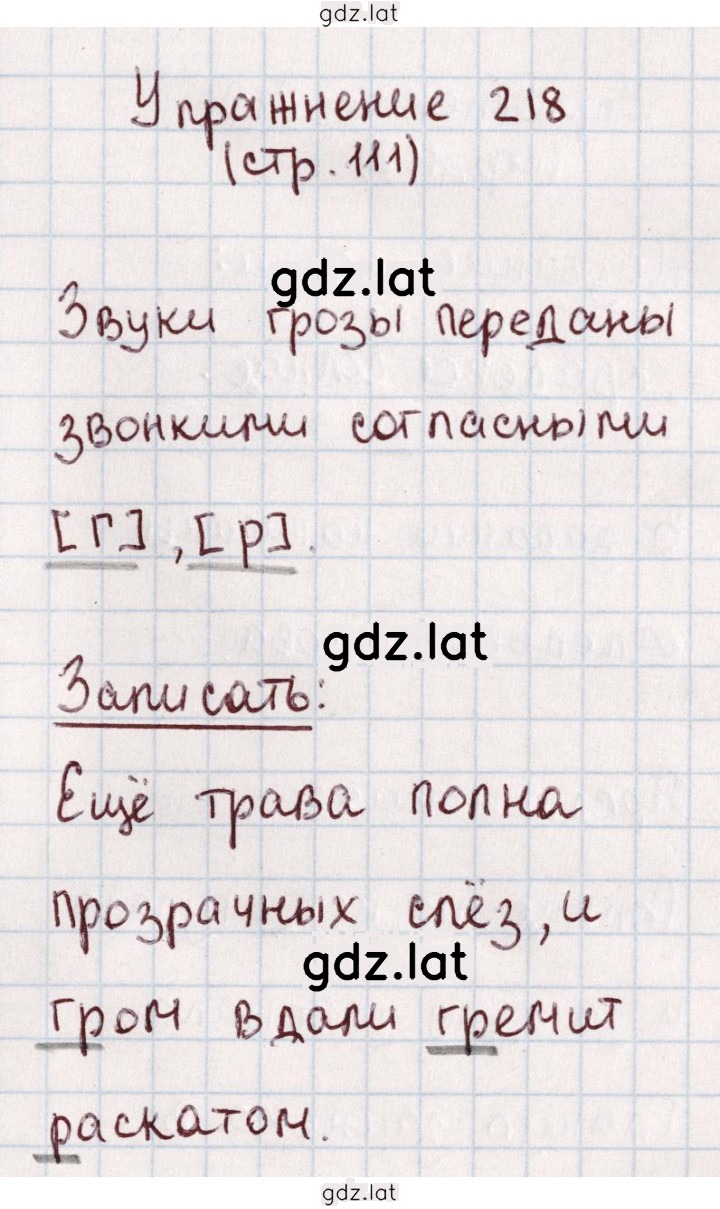 gdz.lat
Упражнение 218
(стр. 111)
gdz.lat
Звуки грозы переданы
звонкими согласными
[г], [р].
gdz.lat
Записать:
Ещё трава полна
прозрачных слёз, и
gdz.lat
гром вдали гремит
раскатом.
gdz.lat